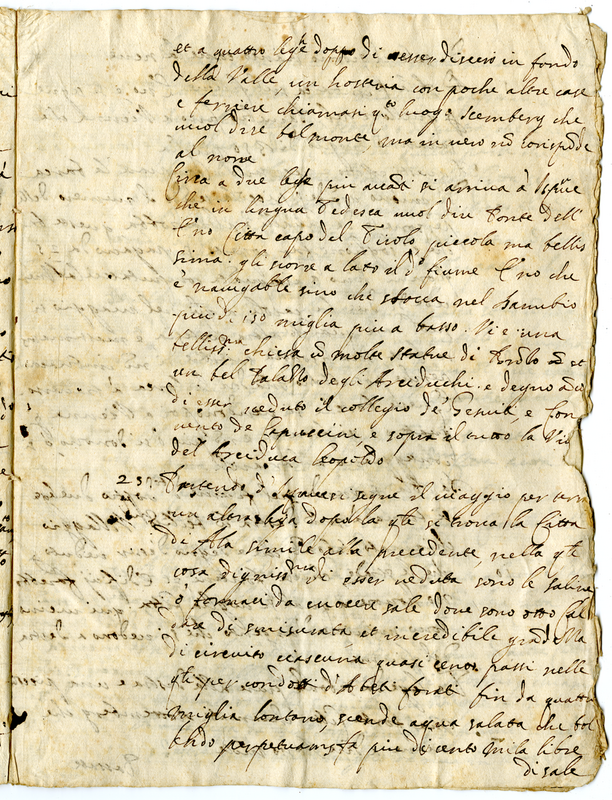 et a quattro leghe doppo di esser discesi in fondo
della Valle un hosteria con poche altre case
e ferriere chiamasi q.to luogo Scemberg che
vuol dire belmonte, ma in vero nõ corispõde
al nome
Circa a due leghe piu avãti si arriva à Ispruc
che in lingua Tedesca vuol dire Ponte dell'
E'no Citta capo del Tirolo piccola ma bellis
sima. gli scorre a lato il d.o fiume E'no che
è navigabile sino che sbocca nel danubio
piu di 150 miglia piu a basso. Vi è una
belliss.ma chiesa cõ molte statue di brõzo et
un bel Palazzo degli Arciduchi. e degno ãco
di esser veduto il collegio de Gesuiti, e Con
vento de Capuccini, e sopra il tutto la Villa
del Arciduca Leopoldo
23 Partendo d' si segue il viaggio per terra
un altra lega dopo la q.le si trova la Citta
de Ala simile alla precedente, nella q.le
cosa digniss.ma di esser veduta sono le saline
ò fornaci da cuocere sale dove sono otto Cal
dare di smisurata et incredibile grãdezza
di circuito ciascuna quasi cento passi nelle
q.li per condotti d'Abeti forati fin da quattro
miglia lontano, scende aqua salata che bol
lẽdo perpetuam.te fa piu di cento mila libre
di sale